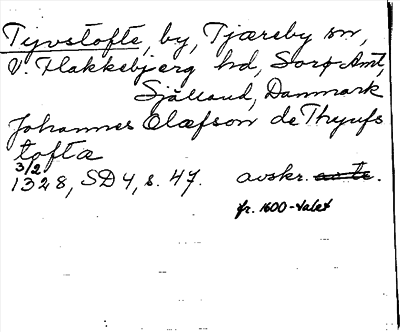 Tyvstofte, by, Tjæreby sn,
V. Flakkebjerg hd, Sorø Amt,
Själland, Danmark
Johannes Olæfson de Thyufs
tofta
3/2
1328, SD 4, s. 47. avskr. .
fr. 1600-talet